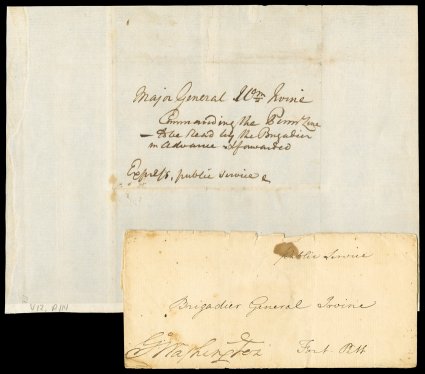 Major General Wm Irvine
Commanding the Pennª Line
— to be read by the Brigadier
in Advance & forwarded
Express, public service
public Service
Brigadier General Irvine
Go Washington
Fort Pitt